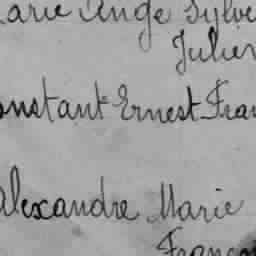 arie Ange Sylve
Julien
onstant Ernest Fran
Alexandre Marie
Françoi